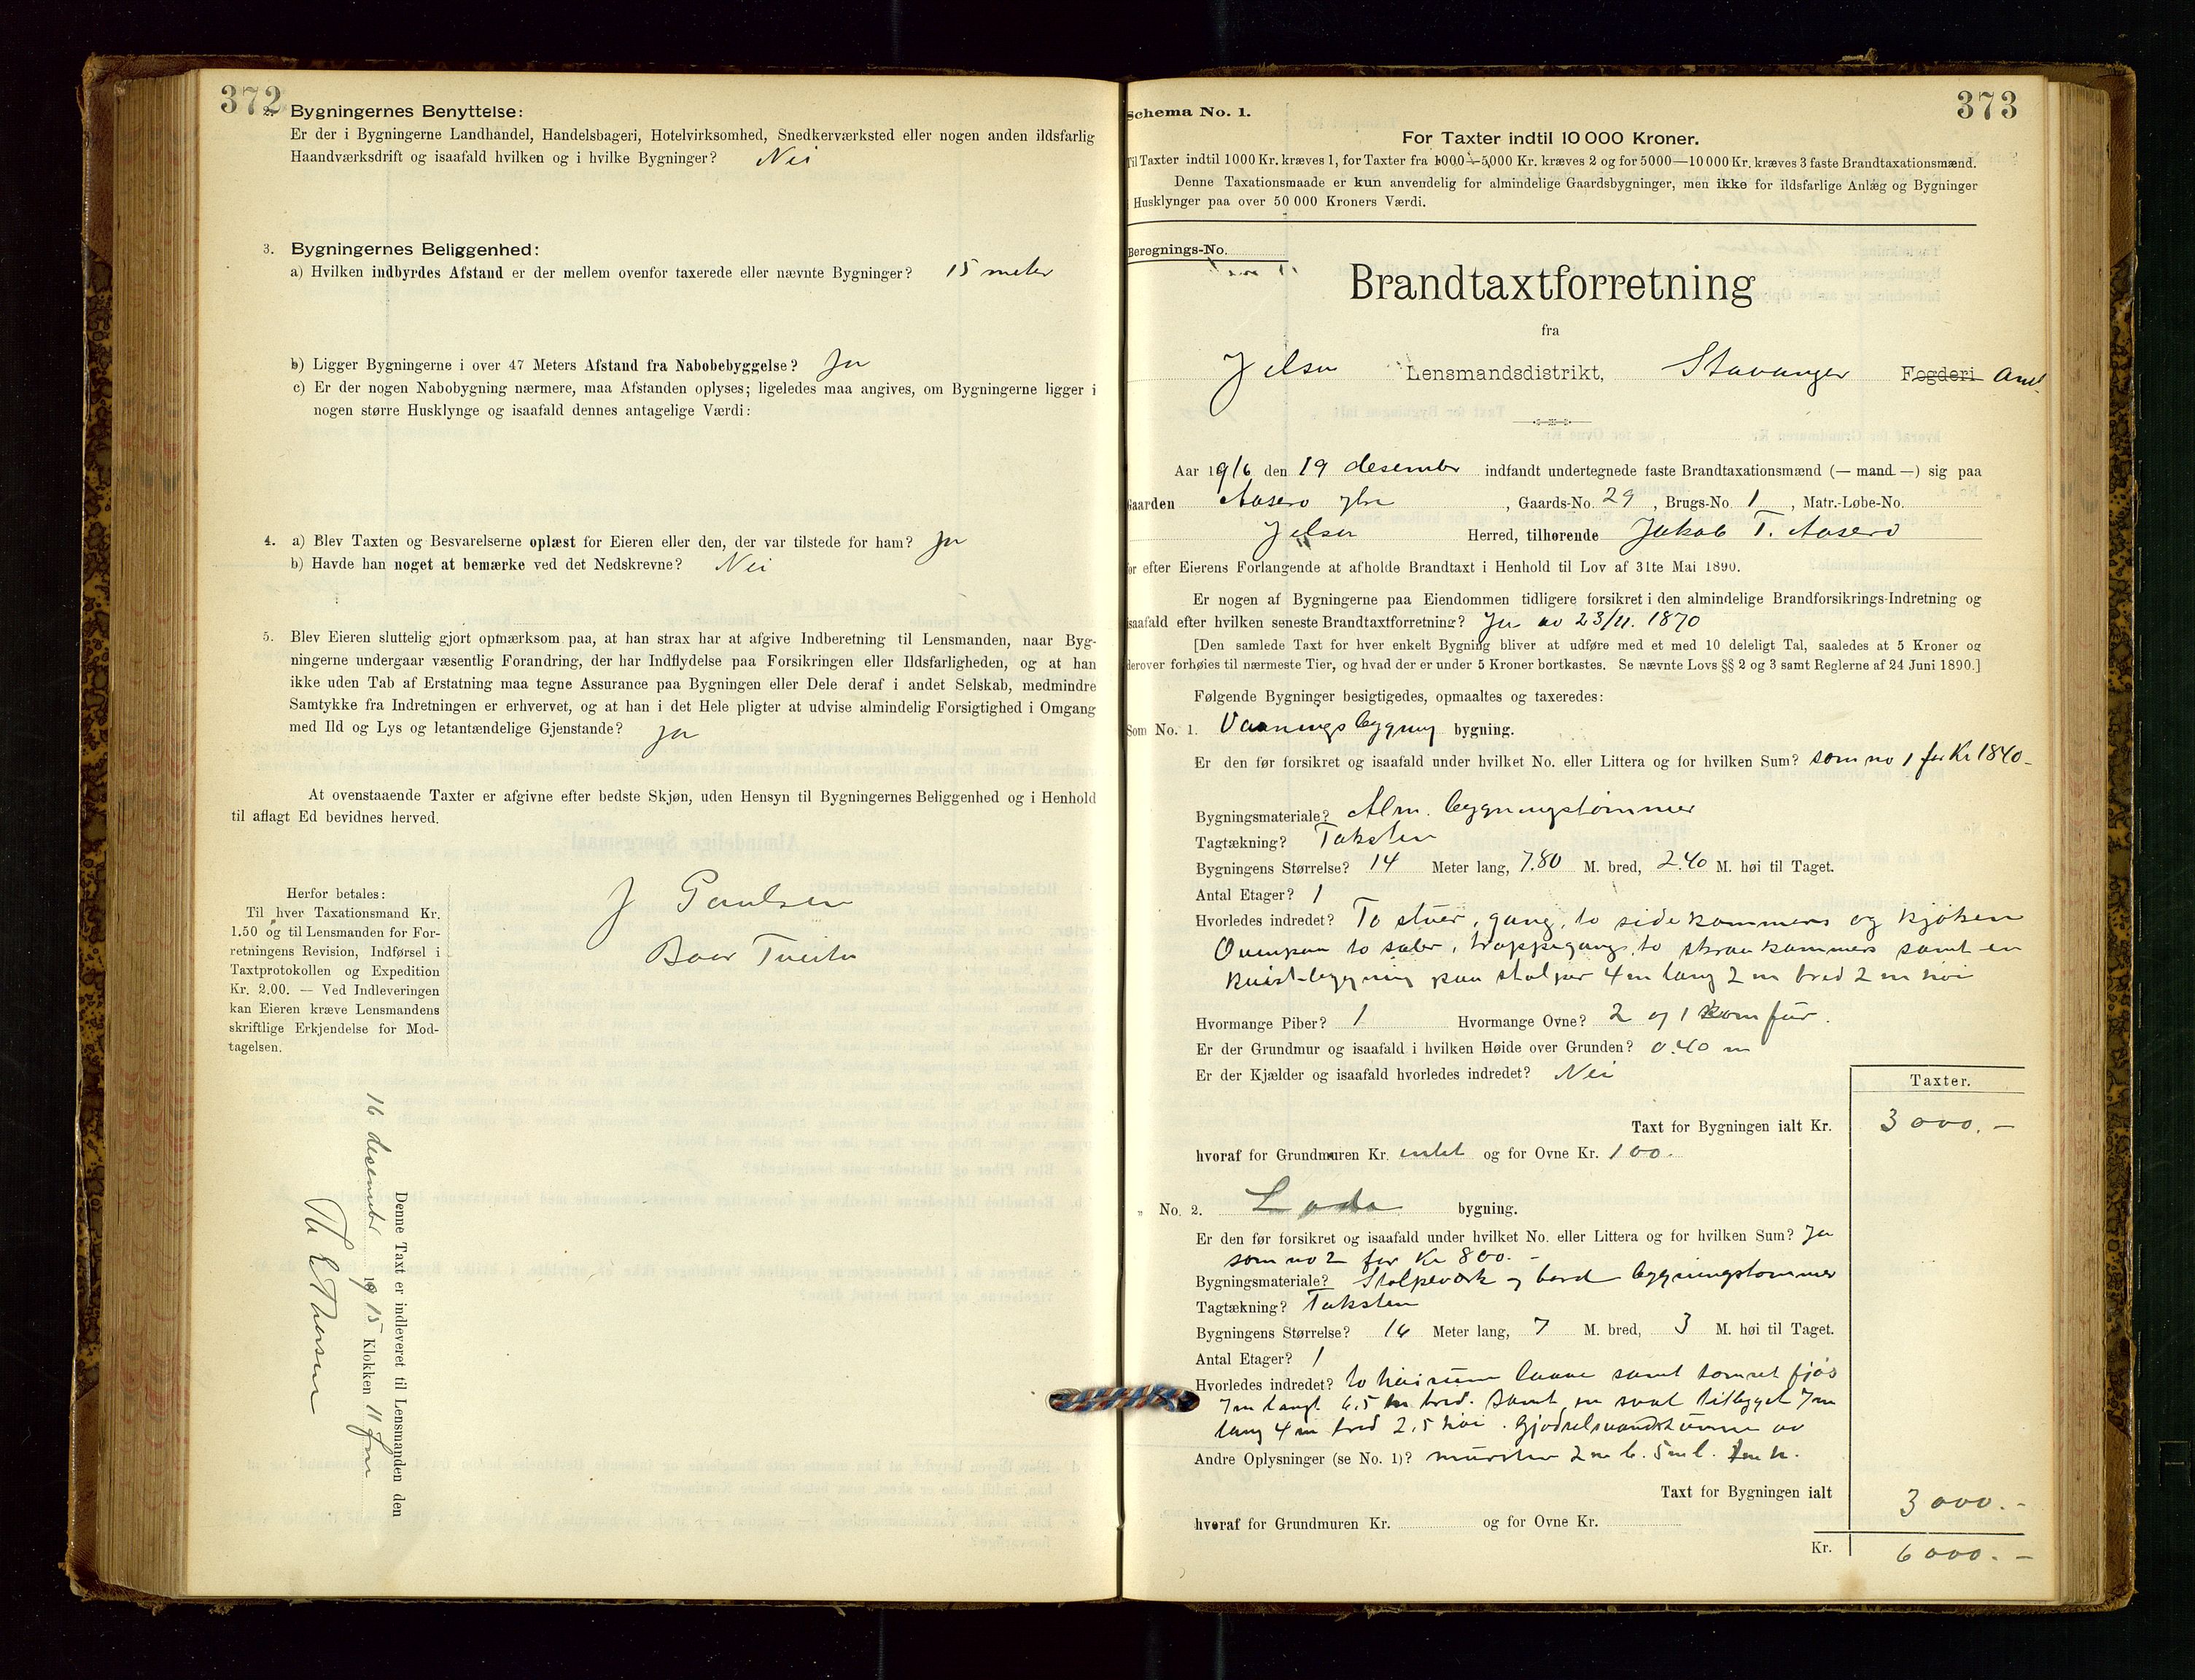 372
2. Bygningernes Benyttelse:
Er der i Bygningerne Landhandel, Handelsbageri, Hotelvirksomhed, Snedkerværksted eller nogen anden ildsfarlig
Haandværksdrift og isaafald hvilken og i hvilke Bygninger? Nei
3. Bygningernes Beliggenhed:
a) Hvilken indbyrdes Afstand er der mellem ovenfor taxerede eller nævnte Bygninger? 15 meter
b) Ligger Bygningerne i over 47 Meters Afstand fra Nabobebyggelse? Ja
c) Er der nogen Nabobygning nærmere, maa Afstanden oplyses; ligeledes maa angives, om Bygningerne ligger i
nogen større Husklynge og isaafald dennes antagelige Værdi:
4. a) Blev Taxten og Besvarelserne oplæst for Eieren eller den, der var tilstede for ham? Ja
b) Havde han noget at bemærke ved det Nedskrevne? Nei
5. Blev Eieren sluttelig gjort opmærksom paa, at han strax har at afgive Indberetning til Lensmanden, naar Byg-
ningerne undergaar væsentlig Forandring, der har Indflydelse paa Forsikringen eller Ildsfarligheden, og at han
ikke uden Tab af Erstatning maa tegne Assurance paa Bygningen eller Dele deraf i andet Selskab, medmindre
Samtykke fra Indretningen er erhvervet, og at han i det Hele pligter at udvise almindelig Forsigtighed i Omgang
med Ild og Lys og letantændelige Gjenstande? ja
At ovenstaaende Taxter er afgivne efter bedste Skjøn, uden Hensyn til Bygningernes Beliggenhed og i Henhold
til aflagt Ed bevidnes herved.
J Paulsen
Baar Tveita
Herfor betales:
Til hver Taxationsmand Kr.
1.50 og til Lensmanden for For-
retningens Revision, Indførsel i
Taxtprotokollen og Expedition
Kr. 2.00. — Ved Indleveringen
kan Eieren kræve Lensmandens
skriftlige Erkjendelse for Mod-
tagelsen.
Denne Taxt er indleveret til Lensmanden den
16 desember 1915 Klokken 11 fm
373
Schema No. 1.
For Taxter indtil 10 000 Kroner.
Til Taxter indtil 1000 Kr. kræves 1, for Taxter fra 1000—5000 Kr. kræves 2 og for 5000—10 000 Kr. kræves 3 faste Brandtaxationsmænd.
Denne Taxationsmaade er kun anvendelig for almindelige Gaardsbygninger, men ikke for ildsfarlige Anlæg og Bygninger
i Husklynger paa over 50 000 Kroners Værdi.
Beregnings-No.
Brandtaxtforretning
fra
Jelsa Lensmandsdistrikt, Stavanger Fogderi Amt.
Aar 1916 den 19 desember indfandt undertegnede faste Brandtaxationsmænd (— mand —) sig paa
Gaarden Aaserø ytre, Gaards-No. 29, Brugs-No. 1, Matr.-Løbe-No.
Jelsa Herred, tilhørende Jakob T. Aaserø
for efter Eierens Forlangende at afholde Brandtaxt i Henhold til Lov af 31te Mai 1890.
Er nogen af Bygningerne paa Eiendommen tidligere forsikret i den almindelige Brandforsikrings-Indretning og
isaafald efter hvilken seneste Brandtaxtforretning? Ja av 23/11. 1870
[Den samlede Taxt for hver enkelt Bygning bliver at udføre med et med 10 deleligt Tal, saaledes at 5 Kroner og
derover forhøies til nærmeste Tier, og hvad der er under 5 Kroner bortkastes. Se nævnte Lovs §§ 2 og 3 samt Reglerne af 24 Juni 1890.]
Følgende Bygninger besigtigedes, opmaaltes og taxeredes:
Som No. 1. Vaaningsbygning bygning.
Er den før forsikret og isaafald under hvilket No. eller Littera og for hvilken Sum? som no 1 for Kr 1840-
Bygningsmateriale? Alm. bygningstømmer
Tagtækning? Taksten
Bygningens Størrelse? 14 Meter lang, 7.80 M. bred, 2.40 M. høi til Taget.
Antal Etager? 1
Hvorledes indredet? To stuer, gang, to sidekammers og kjøken
Ovenpaa to saler, trappegang, to skraakammers samt en
kvistbygning paa stolper 4 m lang 2 m bred 2 m høi
Hvormange Piber? 1 Hvormange Ovne? 2 og 1 komfur.
Er der Grundmur og isaafald i hvilken Høide over Grunden? 0.40 m
Er der Kjælder og isaafald hvorledes indredet? Nei
Taxter.
Taxt for Bygningen ialt Kr. 3000.-
hvoraf for Grundmuren Kr. intet og for Ovne Kr. 100.
" No. 2. Lada bygning.
Er den før forsikret og isaafald under hvilket No. eller Littera og for hvilken Sum? Ja
som no 2 for Kr 800.-
Bygningsmateriale? Stolpeverk og bord bygningstømmer
Tagtækning? Taksten
Bygningens Størrelse? 16 Meter lang, 7 M. bred, 3 M. høi til Taget.
Antal Etager? 1
Hvorledes indredet? to høirum laave samt tømret fjøs
7 m langt 6,5 m bred. samt en sval tilbygget 7 m
lang 4 m bred 2,5 høi. av
Andre Oplysninger (se No. 1)? mursten 2 m b. 5 m l. h.
Taxt for Bygningen ialt 3000.-
hvoraf for Grundmuren Kr. og for Ovne Kr.
Kr. 6000.-